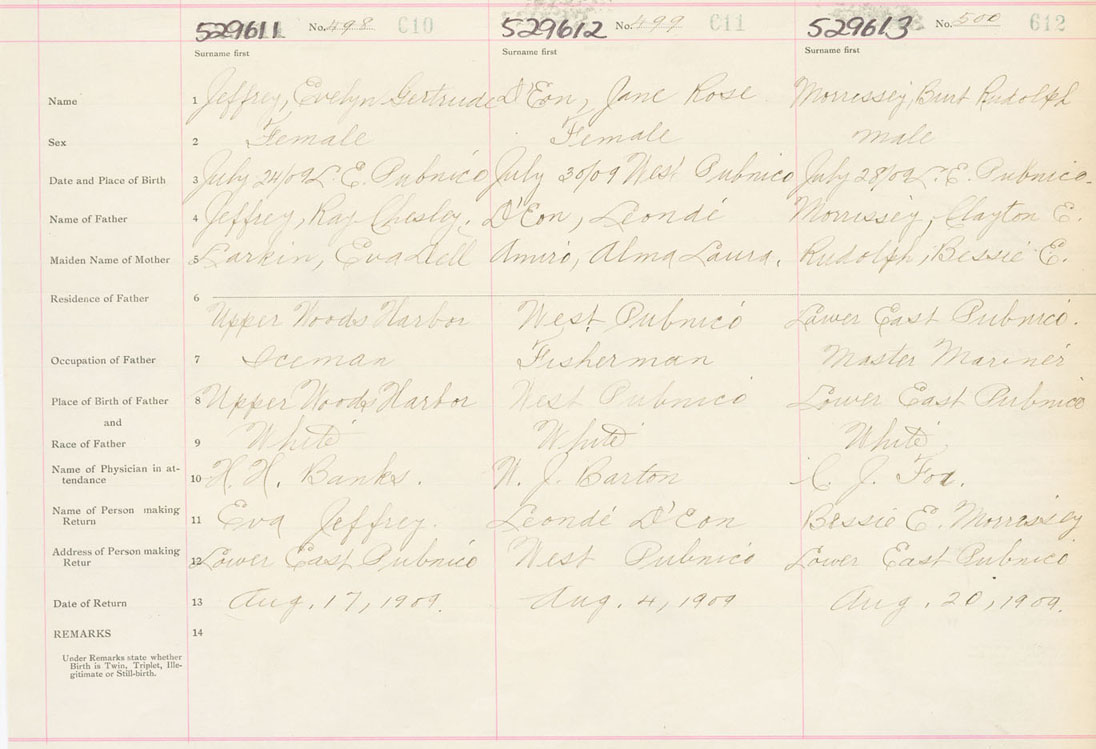 529611 No. 498 C10 529612 No. 499 C11 529613 No. 500 612
Surname first Surname first Surname first
Name 1 Jeffrey, Evelyn Gertrude D'Eon, Jane Rose Morrissey, Burt Rudolph
Sex 2 Female Female male
Date and Place of Birth 3 July 24/09 L. E. Pubnico July 30/09 West Pubnico July 28/09 L. E. Pubnico.
Name of Father 4 Jeffrey, Ray Chesley. D'Eon, Leondé Morrissey, Clayton E.
Maiden Name of Mother 5 Larkin, Eva Dell Amiro, Alma Laura. Rudolph, Bessie E.
Residence of Father 6
Upper Woods Harbor West Pubnico Lower East Pubnico.
Occupation of Father 7 Iceman Fisherman Master Mariner
Place of Birth of Father 8 Upper Woods Harbor West Pubnico Lower East Pubnico
and
Race of Father 9 White White White
Name of Physician in at-
tendance 10 H. H. Banks. W. J. Barton C. J. Fox.
Name of Person making
Return 11 Eva Jeffrey. Leondé D'Eon Bessie E. Morrissey
Address of Person making
Retur 12 Lower East Pubnico West Pubnico Lower East Pubnico
Date of Return 13 Aug. 17, 1909. Aug. 4, 1909 Aug. 20, 1909.
REMARKS 14
Under Remarks state whether
Birth is Twin, Triplet, Ille-
gitimate or Still-birth.